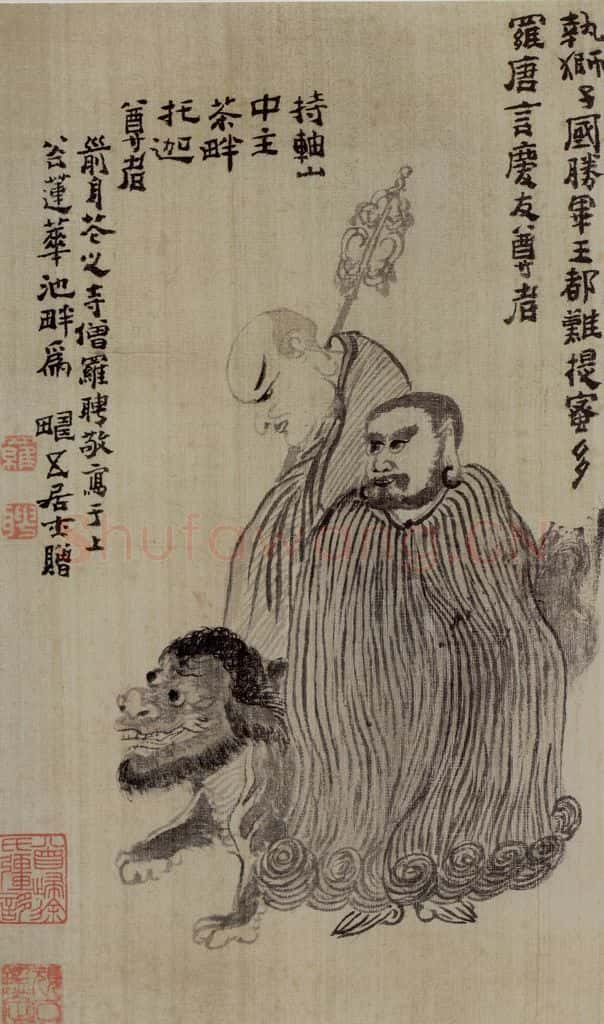 執獅子國勝軍王都難提蜜多
羅唐言慶友尊者
持軸山
中主
荼畔
托迦
尊者
前身花之寺僧羅聘敬寫于上
谷蓮華池畔爲 五居士贈
羅
聘
shufawang.CN